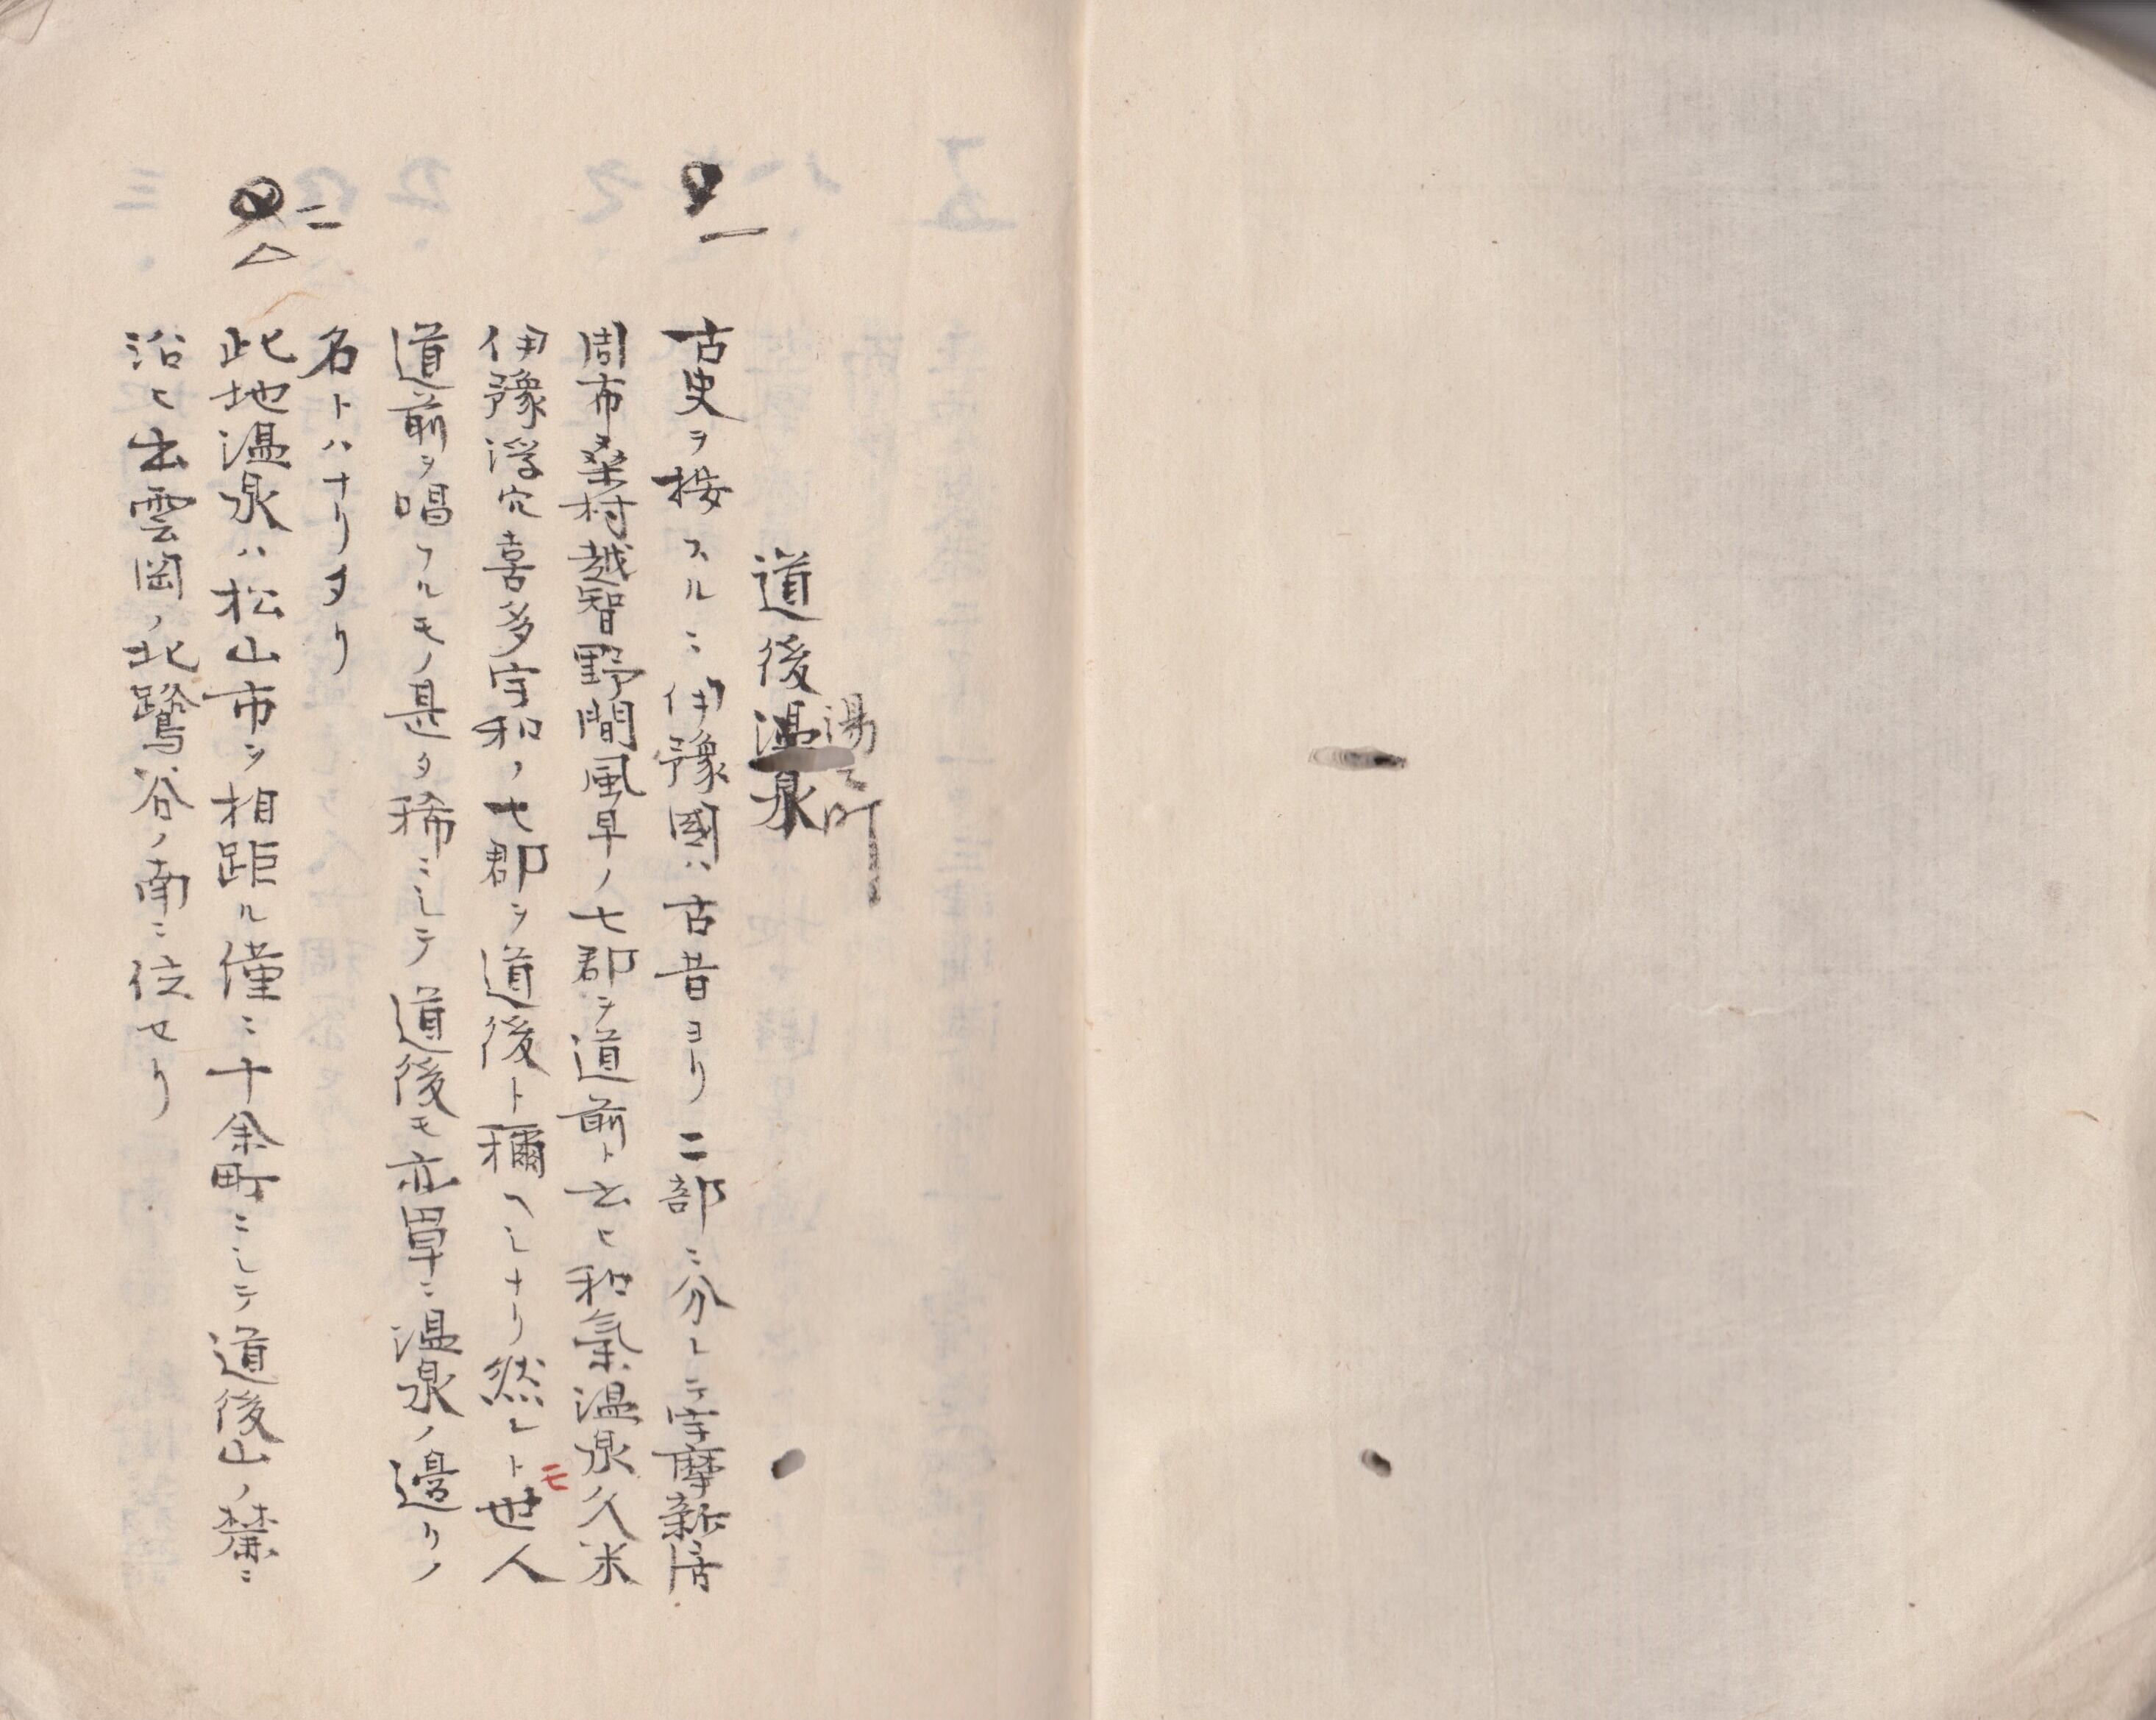 湯之町
道後温泉
一
古史ヲ按スルニ伊豫國ハ古昔ヨリ二部ニ分レテ宇摩新居
周布桑村越智野間風早ノ七郡ヲ道前ト云ヒ和氣温泉久米
伊豫浮穴喜多宇和ノ七郡ヲ道後ト稱ヘシナリ然レトモ世人
道前ヲ唱フルモノ甚タ稀ニシテ道後モ亦単ニ温泉ノ邉リノ
名トハナリタリ
二△
此地温泉ハ松山市ヲ相距ル僅ニ十余町ニシテ道後山ノ麓ニ
沿ヒ出雲岡ノ北鷺谷ノ南ニ位セリ